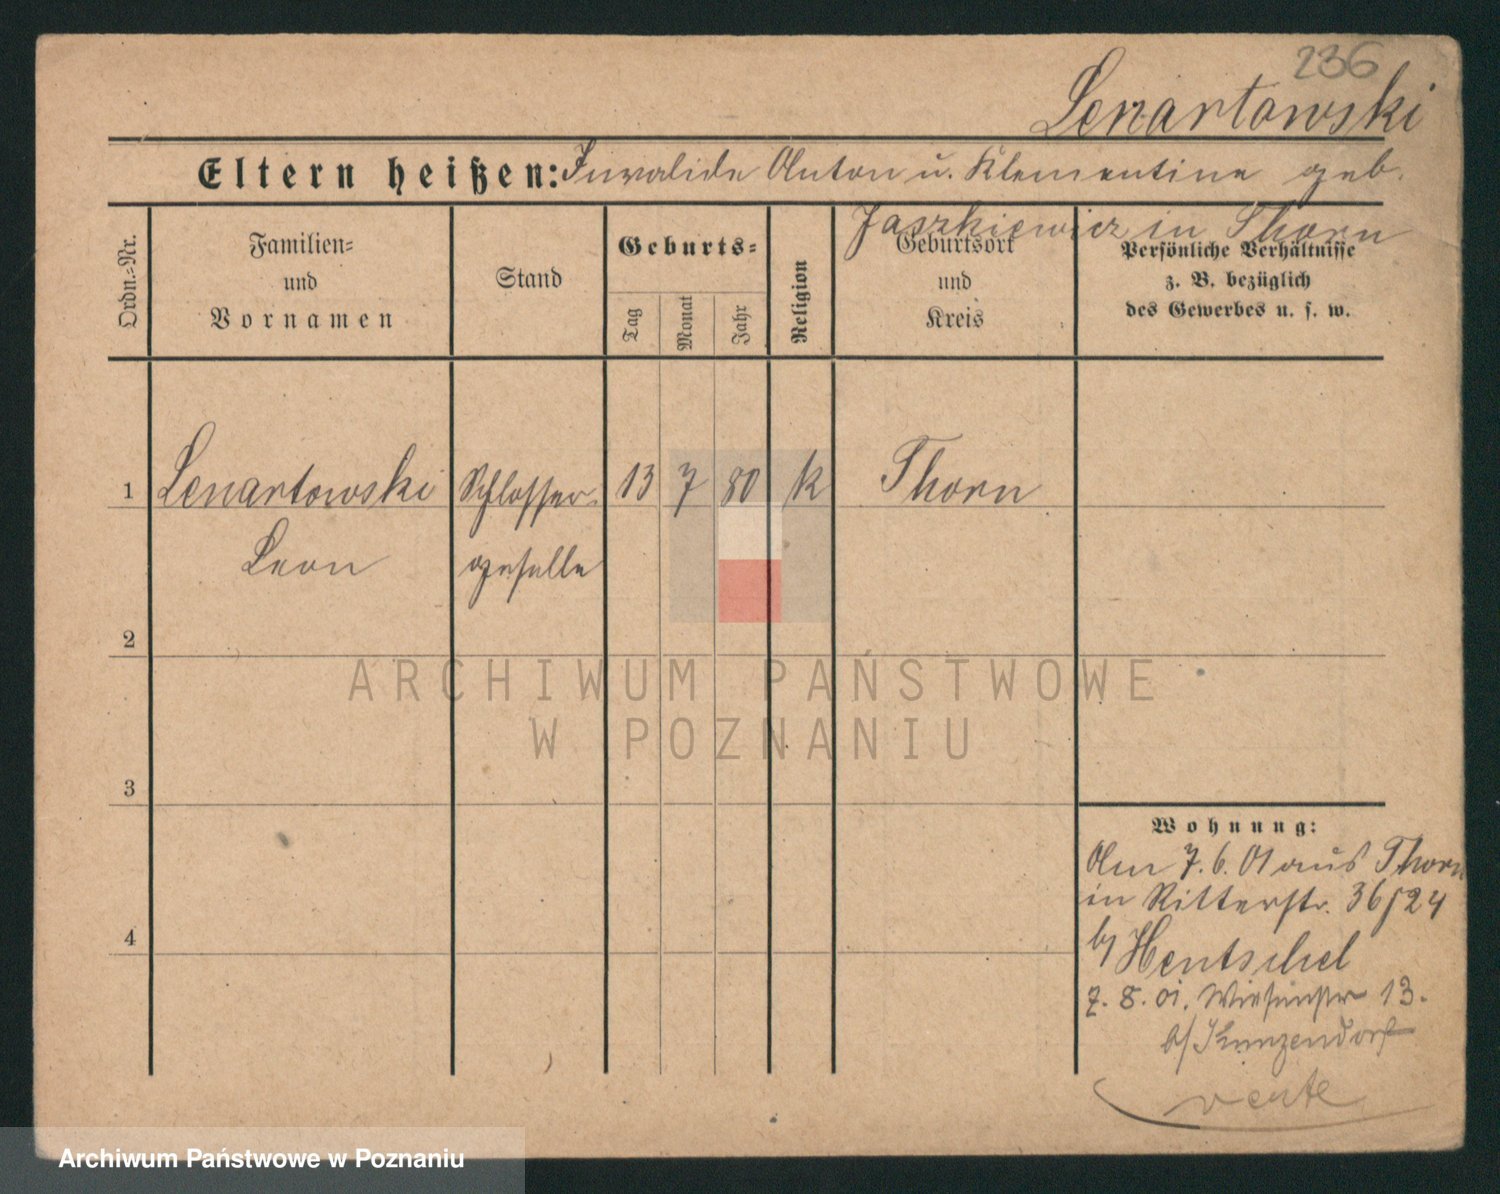 236
Lenartowski
Eltern heißen: Invalide Anton u. Klementine geb.
Jaszkiewicz in Thorn
Ordn.-Nr.
Familien-
und
Vornamen
Stand
Geburts-
Tag
Monat
Jahr
Religion
Geburtsort
und
Kreis
Persönliche Verhältnisse
z. B. bezüglich
des Gewerbes u. s. w.
1 Lenartowski Schlosser- 13 7 80 k Thorn
Leon geselle
2
3
4
Wohnung:
Am 7.6.01 aus Thorn
in Ritterstr. 36/24
b/ Hentschel
7. 8. 01. Wiesenstr 13.
b/ Kunzendorf
verte
ARCHIWUM PAŃSTWOWE
W POZNANIU
Archiwum Państwowe w Poznaniu